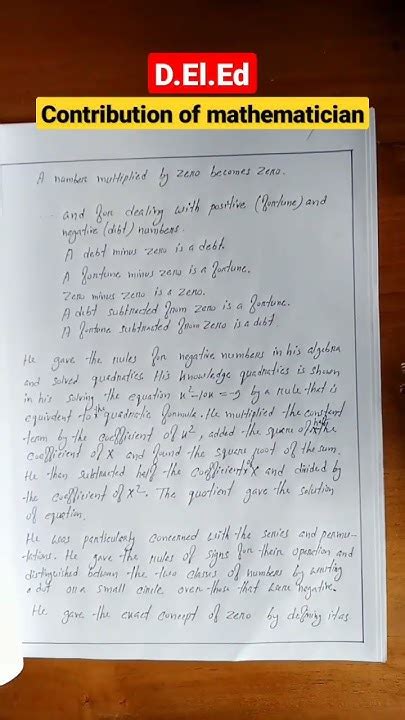 D.El.Ed
Contribution of mathematician
A number multiplied by zero becomes zero.
and for dealing with positive (fortune) and
negative (dibt) numbers.
A debt minus zero is a debt.
A fortune minus zero is a fortune.
Zero minus zero is a zero.
A dibt subtracted from zero is a fortune.
A fortune subtracted from zero is a dibt.
He gave the rules for negative numbers in his algebra
and solved quadratics. His knowledge quadratics is shown
in his solving the equation x²-10x = -9 by a rule that is
equivdent to the quadratic formula. He multiplied the constant
term by the coefficient of x², added the squere of half the
coefficient of X and found the square root of the sum.
He then subtracted half the coefficient of X and divided by
the coefficient of x². The quotient gave the solution
of equetion.
He was particularly concerned with the series and permu-
tations. He gave the rules of signs for their operation and
distinguished between the two classes of numbers by writing
a dot or a small circle over those that were negative.
He gave the exact concept of zero by defining it as